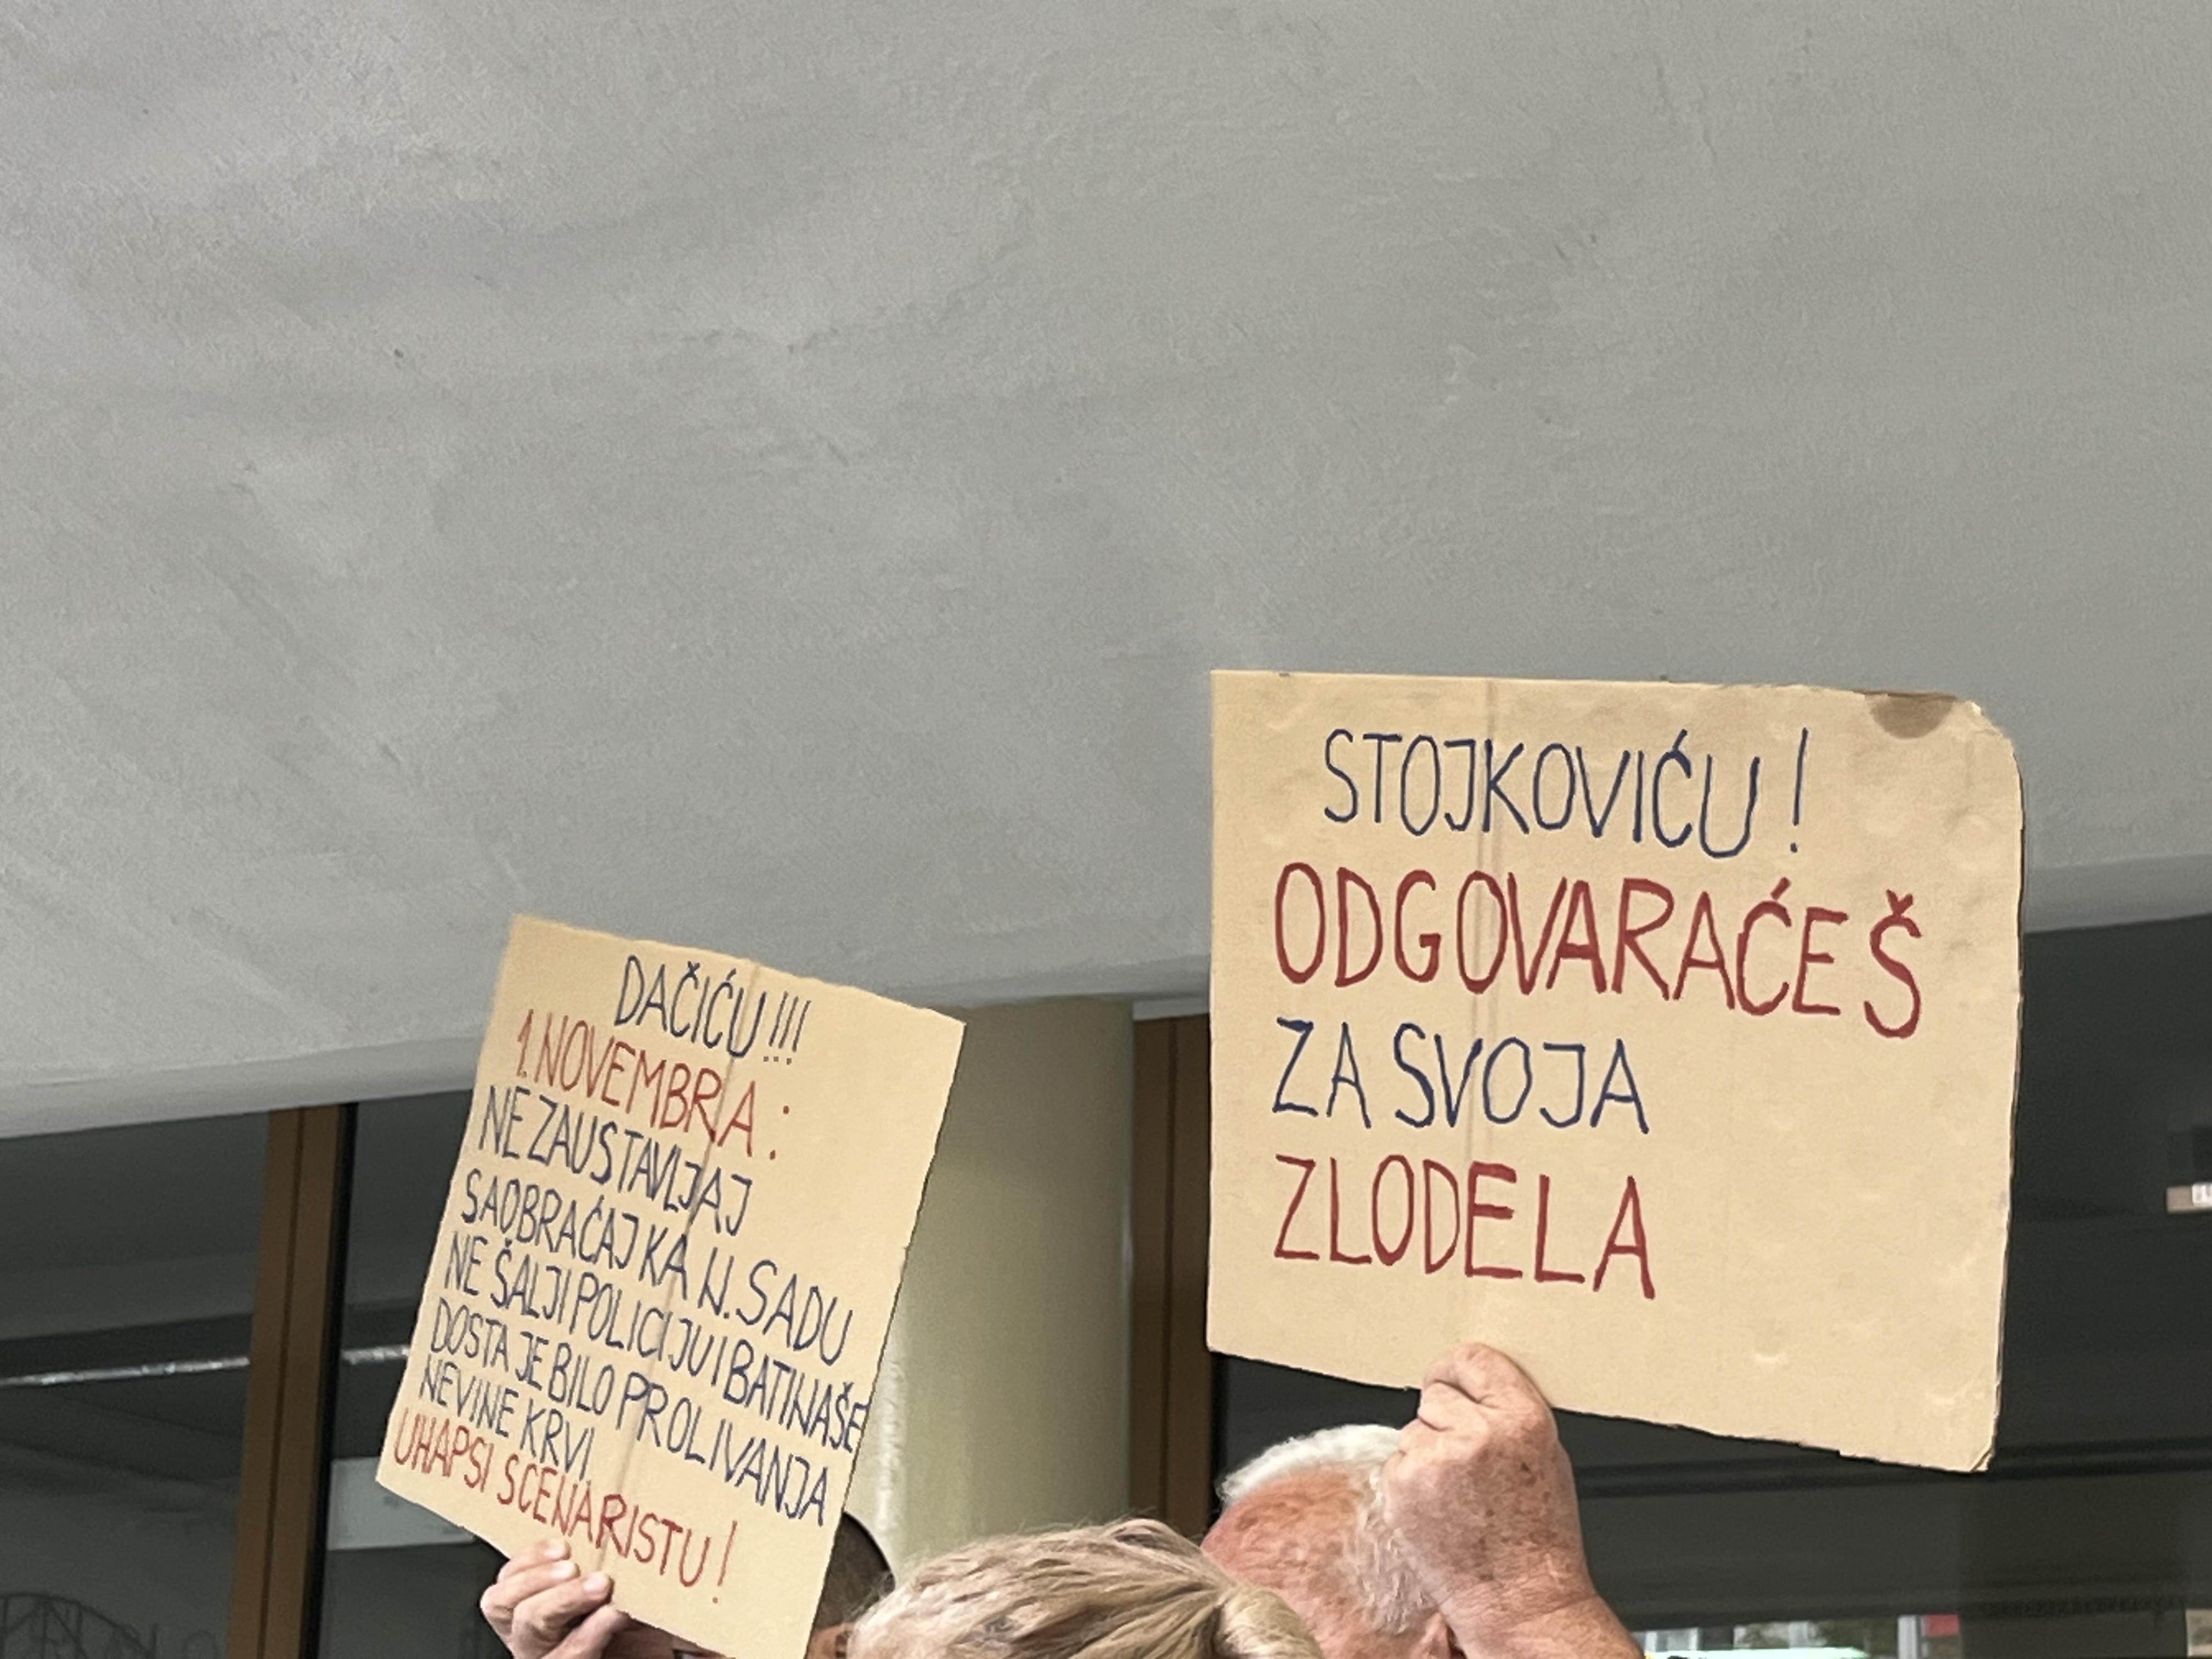 DAČIĆU!!!
1. NOVEMBRA:
NE ZAUSTAVLJAJ
SAOBRAĆAJ KA N. SADU
NE ŠALJI POLICIJU I BATINAŠE
DOSTA JE BILO PROLIVANJA
NEVINE KRVI
UHAPSI SCENARISTU!
STOJKOVIĆU!
ODGOVARAĆEŠ
ZA SVOJA
ZLODELA